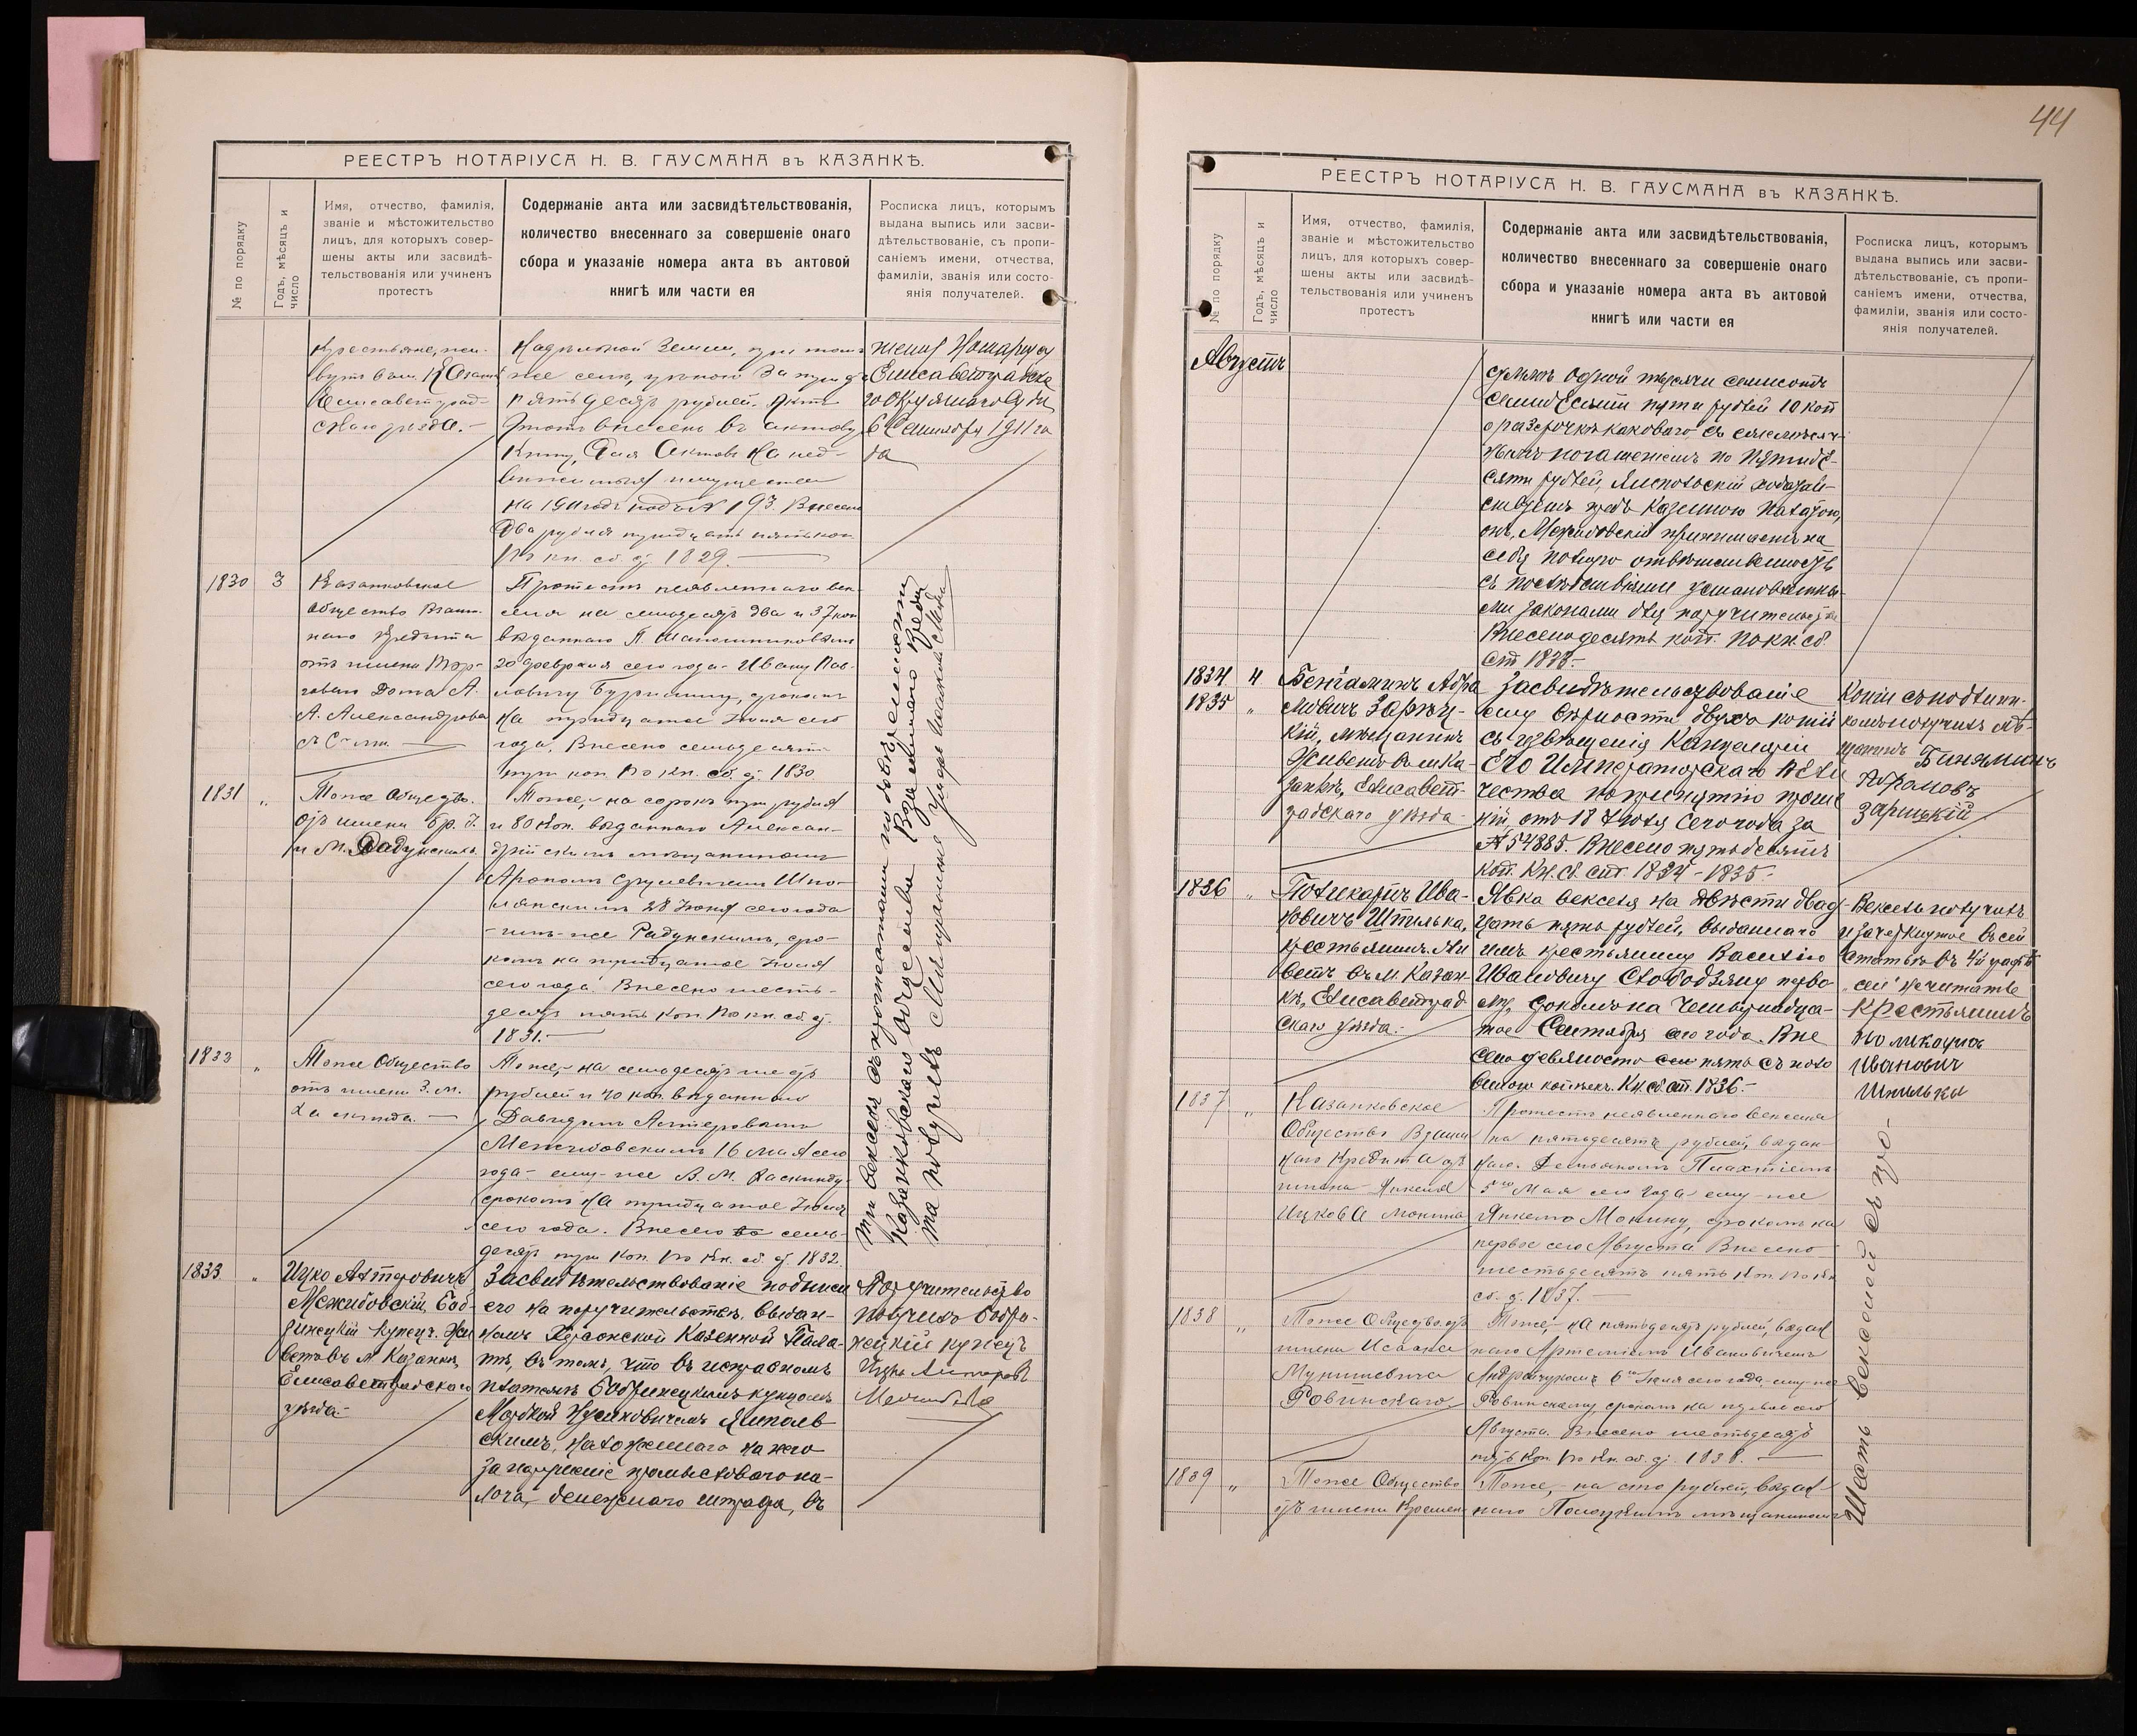 РЕЕСТРЪ НОТАРІУСА Н. В. ГАУСМАНА въ КАЗАНКѢ.
№ по порядку
Годъ, мѣсяцъ и
число
Имя, отчество, фамилія,
званіе и мѣстожительство
лицъ, для которыхъ совер-
шены акты или засвидѣ-
тельствованія или учиненъ
протестъ
Содержаніе акта или засвидѣтельствованія,
количество внесеннаго за совершеніе онаго
сбора и указаніе номера акта въ актовой
книгѣ или части ея
Росписка лицъ, которымъ
выдана выпись или засви-
дѣтельствованіе, съ пропи-
саніемъ имени, отчества,
фамиліи, званія или состо-
янія получателей.
Крестьяне, жи-
вутъ въ м. Казанкѣ
Елисаветград-
скаго уѣзда.-
надѣльной земли, при томъ
же селѣ, цѣною за триста
пятьдесятъ рублей. Актъ
этотъ внесенъ въ актовую
книгу для актовъ на нед-
вижимыя имущества
на 1911 годъ подъ № 193. Внесено
два рубля тридцать пять коп.
По кн. сб. ст. 1829.
Нотаріуса
Елисаветградска
го Окружного Суда
6 Сентября 1911 го
да
1830 3
Казанковское
Общество Взаим-
наго Кредита
отъ имени Тор-
говаго Дома А.
А. Александрова
съ С-ми.
Протестъ неявленнаго век-
селя на семьдесятъ два и 37 коп
выданнаго П. Шапошниковымъ
20 февраля сего года - Ивану Пав-
ловичу Буримину, срокомъ
на тридцатое Іюля сего
года. Внесено семьдесятъ
три коп. По кн. сб. ст. 1830
1831 "
Тоже Общество
отъ имени Бр. І.
и М. Радунскихъ
Тоже,- на сорокъ три рубля
и 80 коп. выданнаго Алексан-
дрійскимъ мѣщаниномъ
Арономъ Срулевичемъ Шпо-
лянскимъ 28 Іюня сего года
- имъ-же Радунскимъ, сро-
комъ на тридцатое Іюля
сего года. Внесено шесть-
десятъ пять коп. По кн. сб. ст.
1831.-
1832 "
Тоже Общество
отъ имени З. М.
Ласкинда.
Тоже,- на семьдесятъ шесть
рублей и 40 коп. выданнаго
Давидомъ Лейтеровымъ
Межибовскимъ 16 мая сего
года - ему-же В. М. Ласкинду
срокомъ на тридцатое Іюля
сего года. Внесено семь-
десятъ три коп. По кн. сб. ст. 1832.
Три векселя съ протестами по довѣренности
Казанковскаго Общества Взаимнаго Креди
та получилъ Мѣщанинъ
1833 "
Ицко Лейтеровичъ
Межибовскій, Боб-
ринецкій купецъ. Жи
ветъ въ м. Казанкѣ,
Елисаветградскаго
уѣзда.-
Засвидѣтельствованіе подписи
его на поручительствѣ, выдан-
номъ Херсонской Казенной Пала-
тѣ, въ томъ, что въ исправномъ
платежѣ Бобринецкимъ купцомъ
Мордкой Нусиховичемъ Ямполь-
скимъ, наложеннаго на него
за нарушеніе промысловаго на-
лога, денежнаго штрафа, въ
Поручительство
получилъ Бобри-
нецкій купецъ
44
РЕЕСТРЪ НОТАРІУСА Н. В. ГАУСМАНА въ КАЗАНКѢ.
№ по порядку
Годъ, мѣсяцъ и
число
Имя, отчество, фамилія,
званіе и мѣстожительство
лицъ, для которыхъ совер-
шены акты или засвидѣ-
тельствованія или учиненъ
протестъ
Содержаніе акта или засвидѣтельствованія,
количество внесеннаго за совершеніе онаго
сбора и указаніе номера акта въ актовой
книгѣ или части ея
Росписка лицъ, которымъ
выдана выпись или засви-
дѣтельствованіе, съ пропи-
саніемъ имени, отчества,
фамиліи, званія или состо-
янія получателей.
Августъ
суммѣ одной тысячи семисотъ
семидесяти пяти рублей 10 коп
о разсрочкѣ каковаго съ ежемѣсяч-
нымъ погашеніемъ по пятиде-
сяти рублей, Ямпольскій ходатай-
ствуетъ предъ Казенною Палатою,
онъ, Межибовскій принимаетъ на
себя полную отвѣтственность
съ послѣдствіями установленны-
ми законами для поручительства
Внесено десять коп. По кн. сб.
ст. 1833.-
1834 4
1835 "
Беніаминъ Абра
мовичъ Зарѣц-
кій, мѣщанинъ
Живетъ въ м. Ка-
занкѣ, Елисавет-
градскаго уѣзда
Засвидѣтельствованіе
ему вѣрности двухъ копій
съ извѣщенія Канцеляріи
Его Императорскаго Вели
чества по принятію проше
ній, отъ 18 Іюля сего года за
№ 54885. Внесено пятьдесятъ
коп. Кн. сб. ст. 1834-1835.-
Копіи съ подлин-
комъ получилъ мѣ-
щанинъ Биняминъ
Абрамовъ
Зарицкій
1836 "
Поликарпъ Ива-
новичъ Шпилька,
крестьянинъ. Жи
ветъ въ м. Казан-
кѣ, Елисаветград
скаго уѣзда.-
Явка векселя на двѣсти двад-
цать пять рублей, выданнаго
имъ крестьянину Василію
Ивановичу Слободзяну перво-
му, срокомъ на четырнадца-
тое Сентября сего года. Вне
сено девяносто семь пять съ поло
виною копѣекъ. Кн. сб. ст. 1836.-
Вексель получилъ
и зачеркнутое въ сей
статьѣ въ 4й графѣ
"семь" не читать
Крестьянинъ
Поликарпъ
Иванович
Шпилька
1837 "
Казанковское
Общество Взаим
наго Кредита отъ
имени Янкеля
Ицкова Монина
Протестъ неявленнаго векселя
на пятьдесятъ рублей, выдан-
наго Демьяномъ Плахтіемъ
5го Мая сего года - ему-же
Янкелю Монину, срокомъ на
первое сего Августа Внесено
шестьдесятъ пять коп. По кн
сб. ст. 1837.-
1838 "
Тоже Общество отъ
имени Исаака
Мунишевича
Ровинскаго
Тоже,- на пятьдесятъ рублей, выдан
наго Артеміемъ Ивановичемъ
Андрейчукомъ 6го Іюля сего года,- ему-же
Ровинскому, срокомъ на первое сего
Августа. Внесено шестьдесятъ
пять коп. По кн. сб. ст. 1838.
1839 "
Тоже Общество
отъ имени Кремен
Тоже,- на сто рублей, выдан-
наго мѣщаниномъ
Шесть векселей съ про-